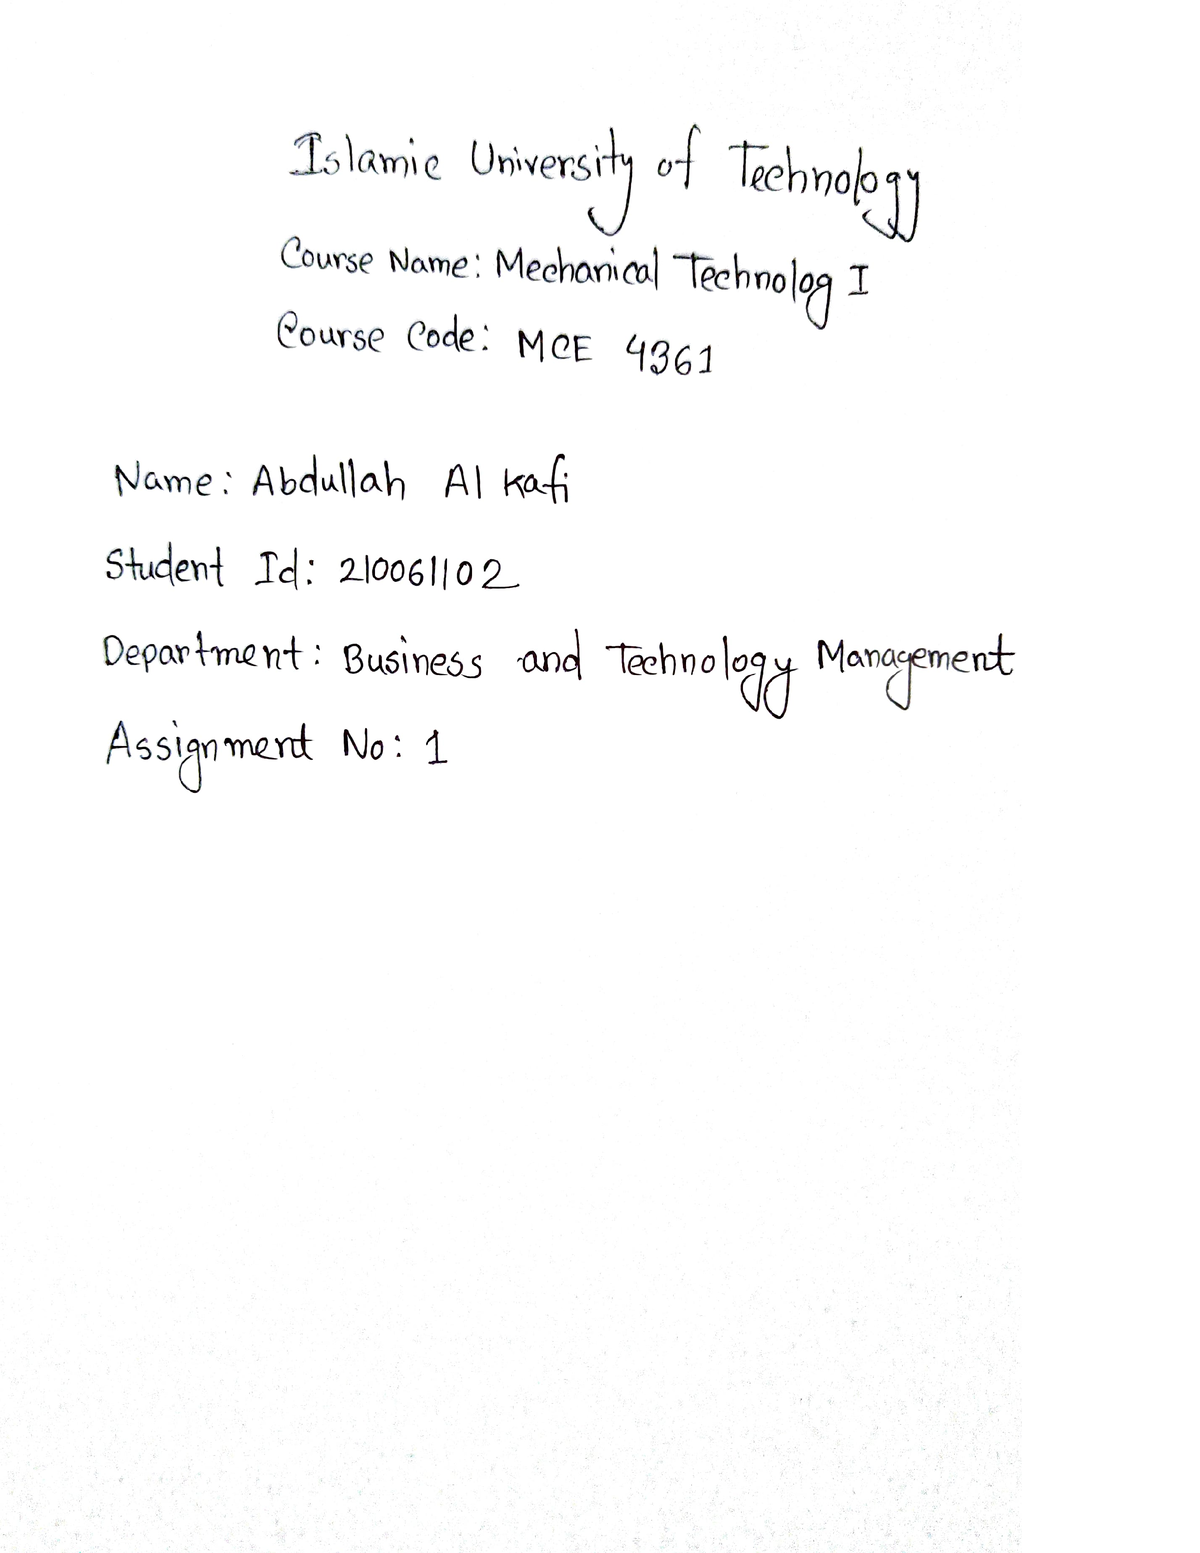 Islamic University of Technology
Course Name: Mechanical Technolog I
Course Code: MCE 4361
Name: Abdullah Al Kafi
Student Id: 210061102
Department: Business and Technology Management
Assignment No: 1